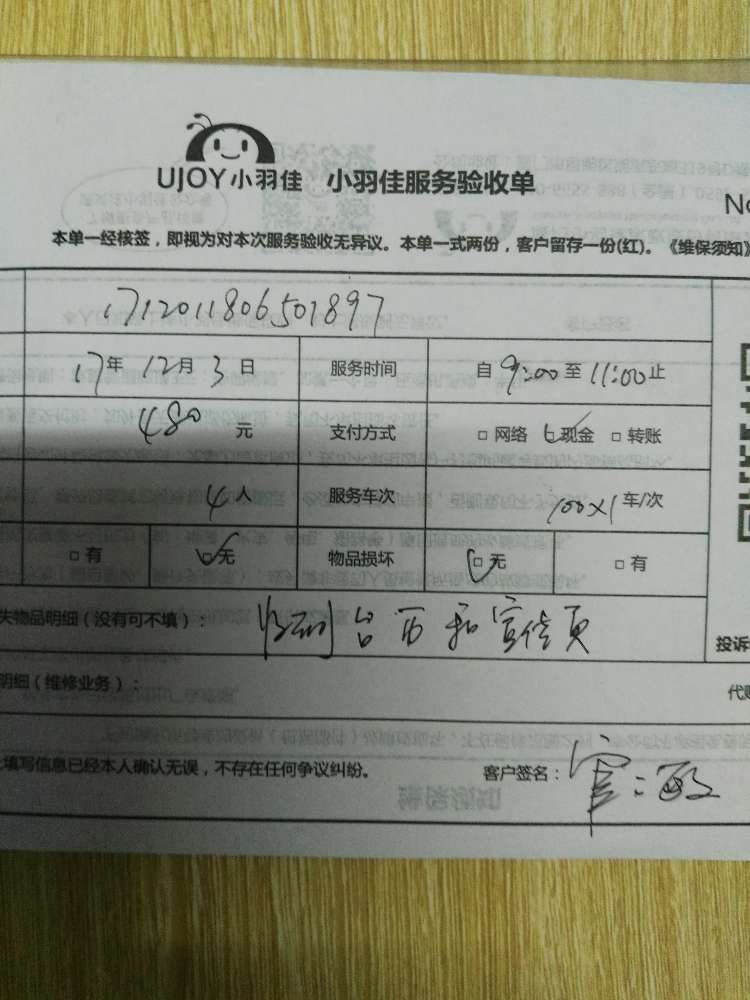 UJOY小羽佳 小羽佳服务验收单
No
本单一经核签，即视为对本次服务验收无异议。本单一式两份，客户留存一份(红)。《维保须知》
171201180650 1897
17年 12月 3日 服务时间 自 9:00 至 11:00 止
480 元 支付方式 □ 网络 ☑现金 □ 转账
4人 服务车次 100×1 车/次
□ 有 ☑无 物品损坏 ☑无 □ 有
失物品明细（没有可不填）： 收到 台 历 和 宣传页
投诉
明细（维修业务）：
代购
填写信息已经本人确认无误，不存在任何争议纠纷。 客户签名：